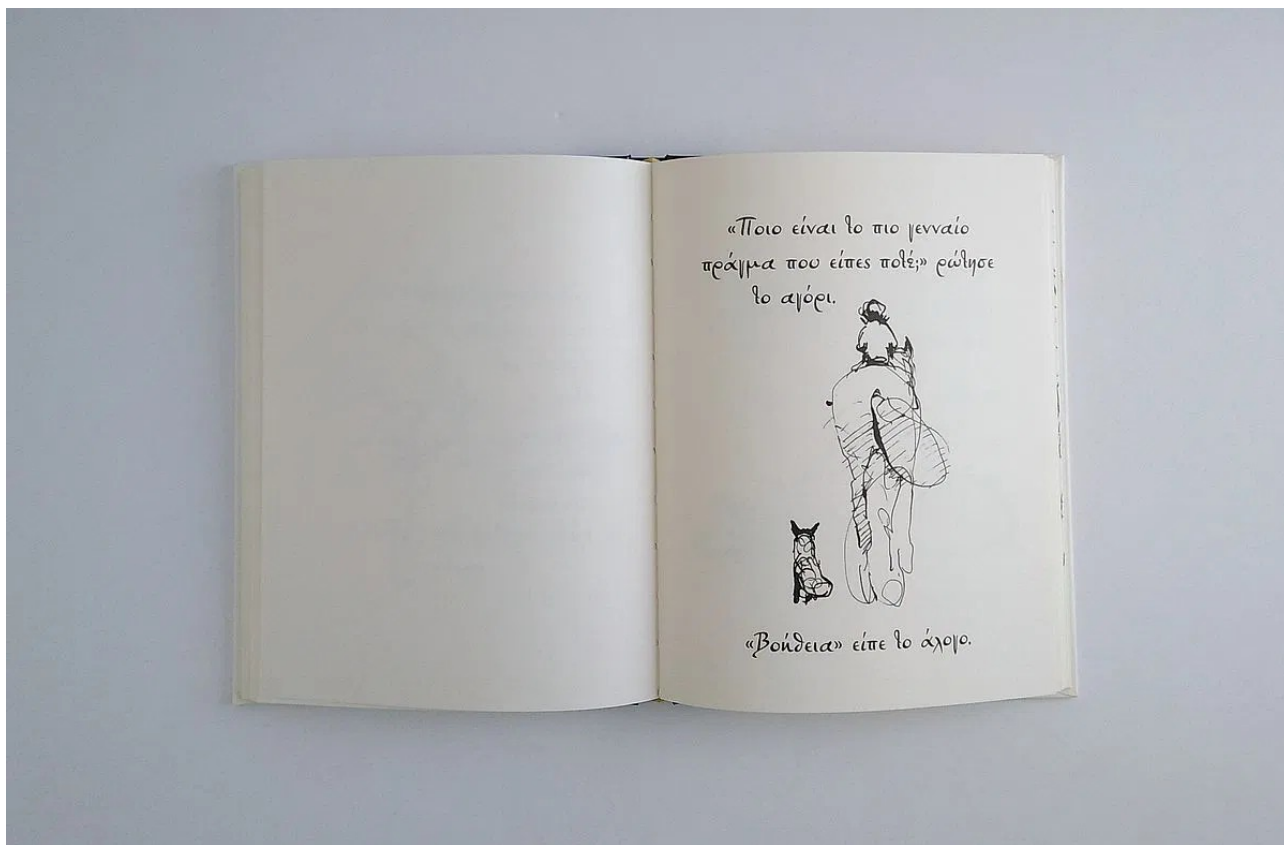 «Ποιο είναι το πιο γενναίο
πράγμα που είπες ποτέ;» ρώτησε
το αγόρι.
«Βοήθεια» είπε το άλογο.